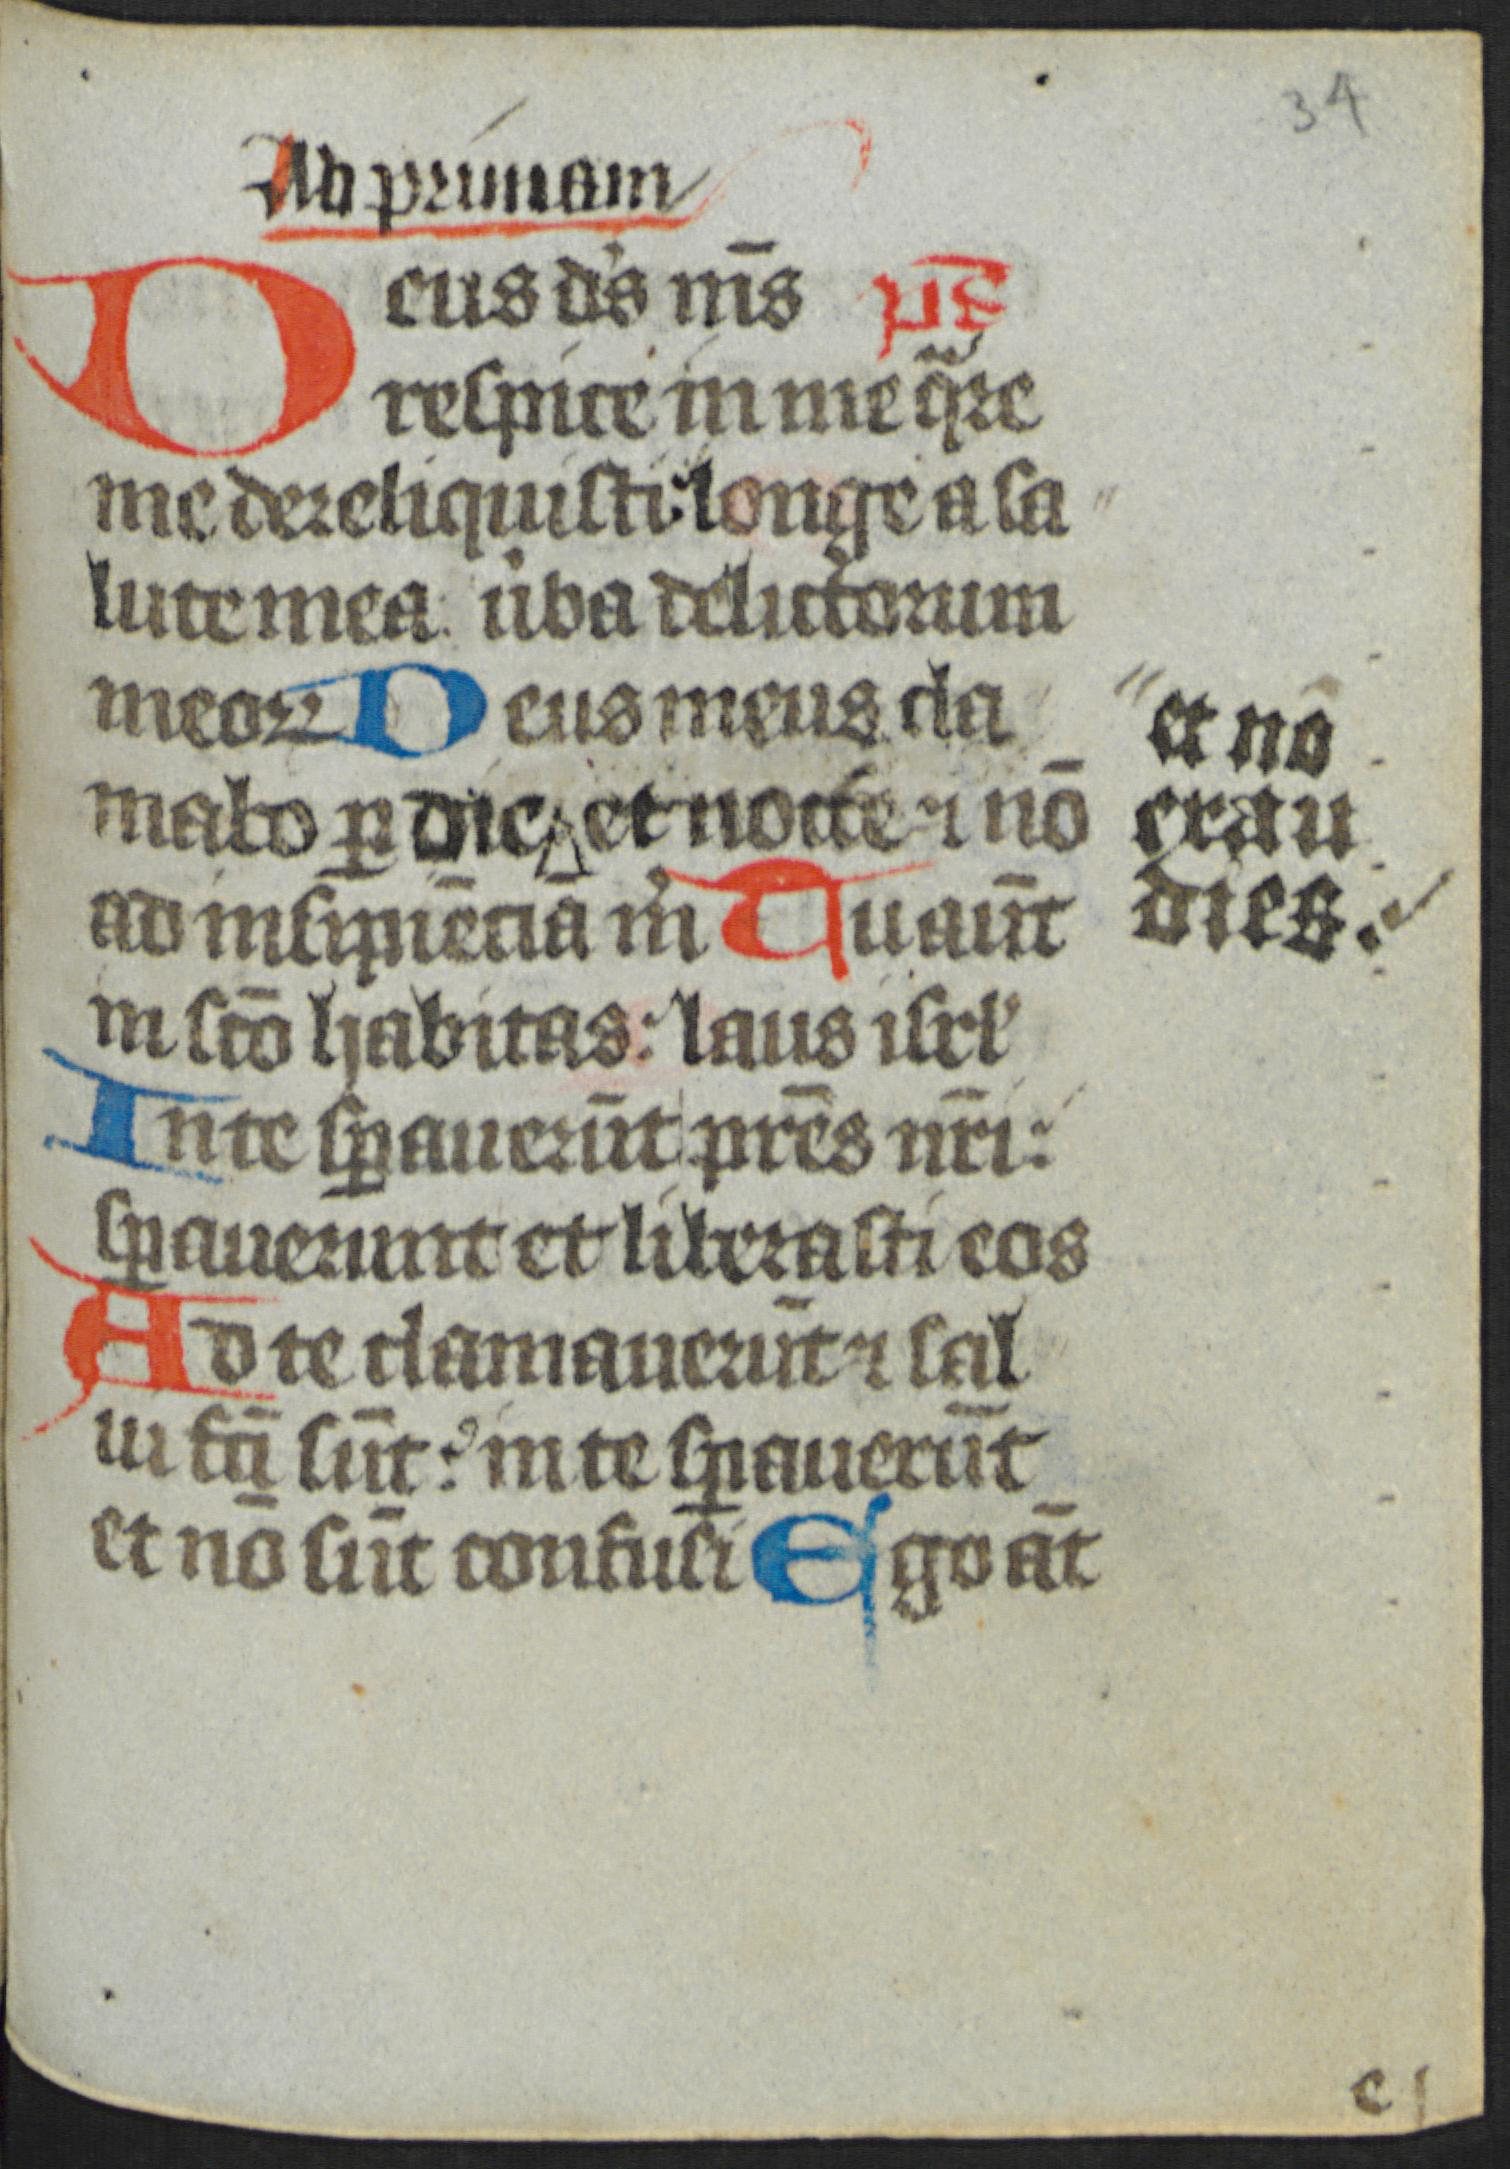 34
Ad primam
Deus ds̄ ms̄ ps̄
respice in me qͣre
me dereliquisti: longe a sa
lute mea: u̓ba delictorum
meoꝝ Deus meus cla
mabo ꝑ die et nocte ⁊ nō
ad insipiēciā m̓ Tu aūt
in scō habitas: laus isrl̓
In te sꝑauerūt pr̄es nr̄i:
sꝑauerunt et liberasti eos
Ad te clamauerūt ⁊ sal
ui fc̄i sūt: in te sꝑauerūt
et nō sūt confusi Ego āt
et nō
exau
dies.
c j